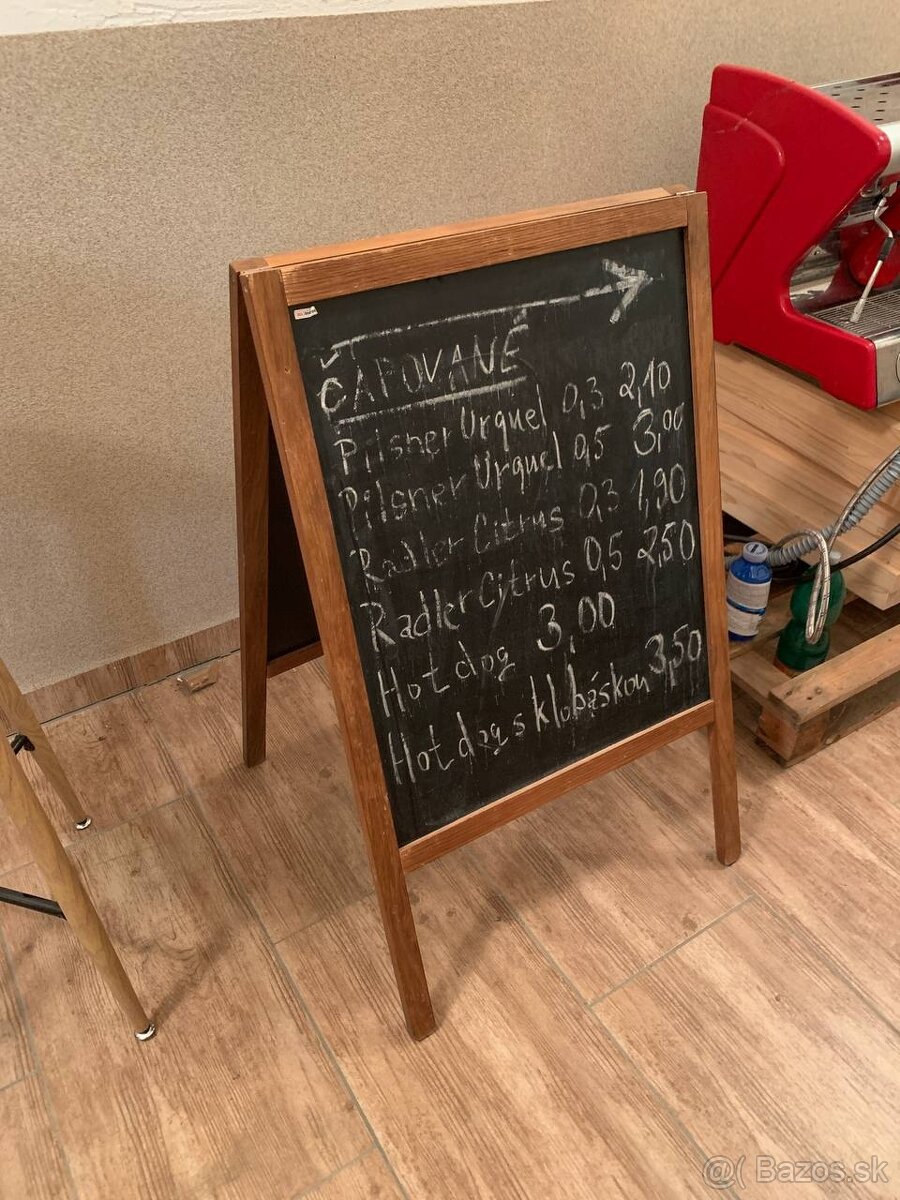 ČAPOVANÉ
Pilsner Urquel 0,3 2,10
Pilsner Urquel 0,5 3,00
Radler Citrus 0,3 1,90
Radler Citrus 0,5 2,50
Hot dog 3,00
Hot dog s klobáskou 3,50
@( Bazos.sk